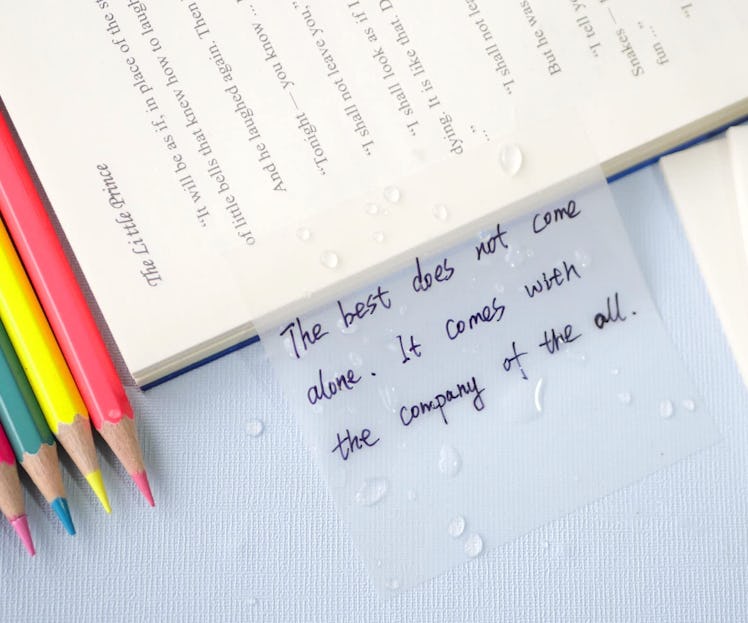 The best does not come
alone. It comes with
the company of the all.
The Little Prince
"It will be as if, in place of the st
of little bells that knew how to laugh
And he laughed again. Then
"Tonight — you know ...
"I shall not leave you,"
"I shall look as if I
dying. It is like that. D
..."
"I shall not lea
But he was
"I tell y
Snakes —
fun ..."
"I